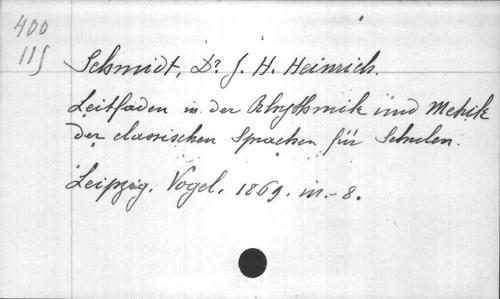 400
115
Schmidt, Dr J. H. Heinrich.
Leitfaden in der Rhythmik und Metrik
der classischen Sprachen für Schulen.
Leipzig. Vogel. 1869. in.-8.